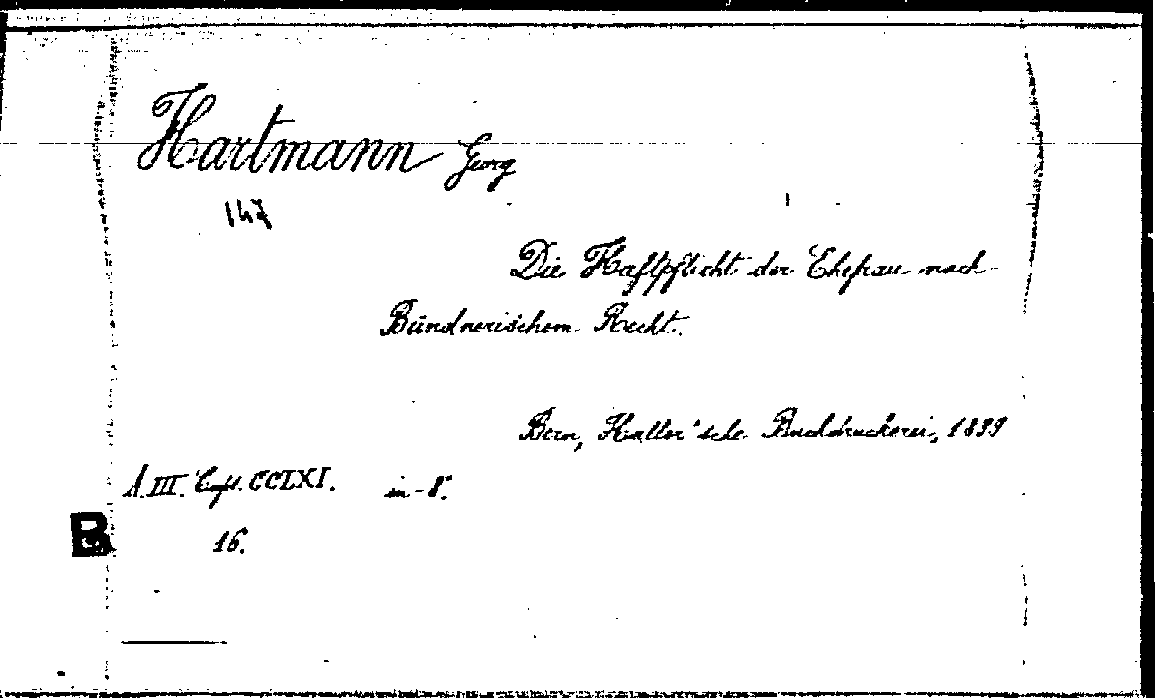 Hartmann Georg
147
Die Haftpflicht der Ehefrau nach
Bündnerischem Recht.
Bern, Haller'sche Buchdruckerei, 1899
A. III. Caps. CCLXI. in-8°.
B
16.